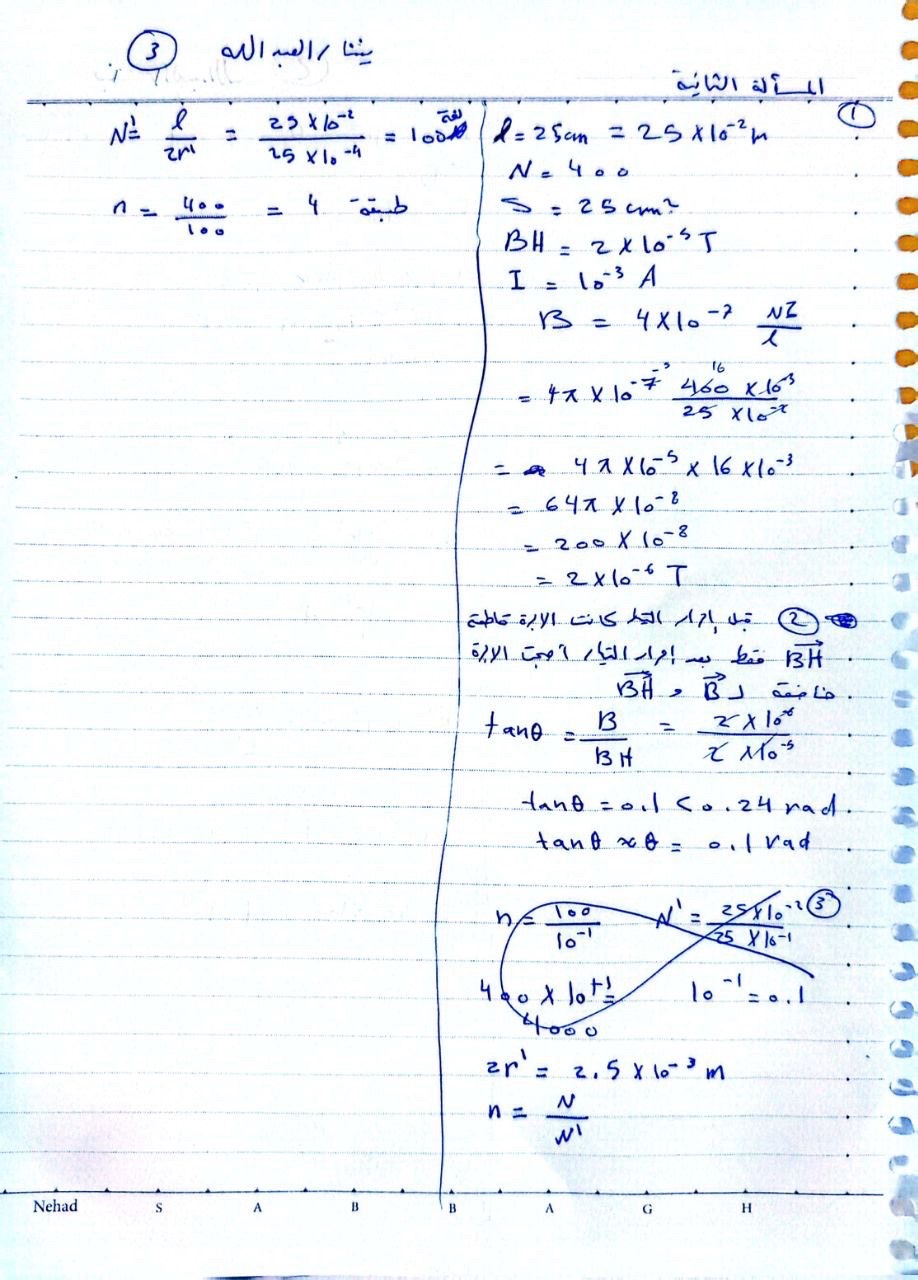 3
المسألة الثانية
1
l = 25 cm = 25 × 10⁻² m
N = 400
S = 25 cm²
BH = 2 × 10⁻⁵ T
I = 10⁻³ A
B = 4 × 10⁻⁷ NI/l
= 4π × 10⁻⁷ 400 × 10⁻³ / 25 × 10⁻²
= 4π × 10⁻⁵ × 16 × 10⁻³
= 64π × 10⁻⁸
= 200 × 10⁻⁸
= 2 × 10⁻⁶ T
2 قبل إمرار التيار كانت الابرة
BH فقط بعد إمرار التيار اصبحت الابرة
خاضعة لـ B و BH
tanθ = B/BH = 2 × 10⁻⁶ / 2 × 10⁻⁵
tanθ = 0.1 < 0.24 rad
tanθ ≈ θ = 0.1 rad
3 N' = 25 × 10⁻² / 25 × 10⁻¹ n = 100 / 10⁻¹
10⁻¹ = 0.1 400 × 10⁺¹ =
4000
2r' = 2.5 × 10⁻³ m
n = N/N'
N' = l/2r' = 25 × 10⁻² / 25 × 10⁻⁴ = 100 لفة
n = 400/100 = 4 طبقة
Nehad S A B B A G H